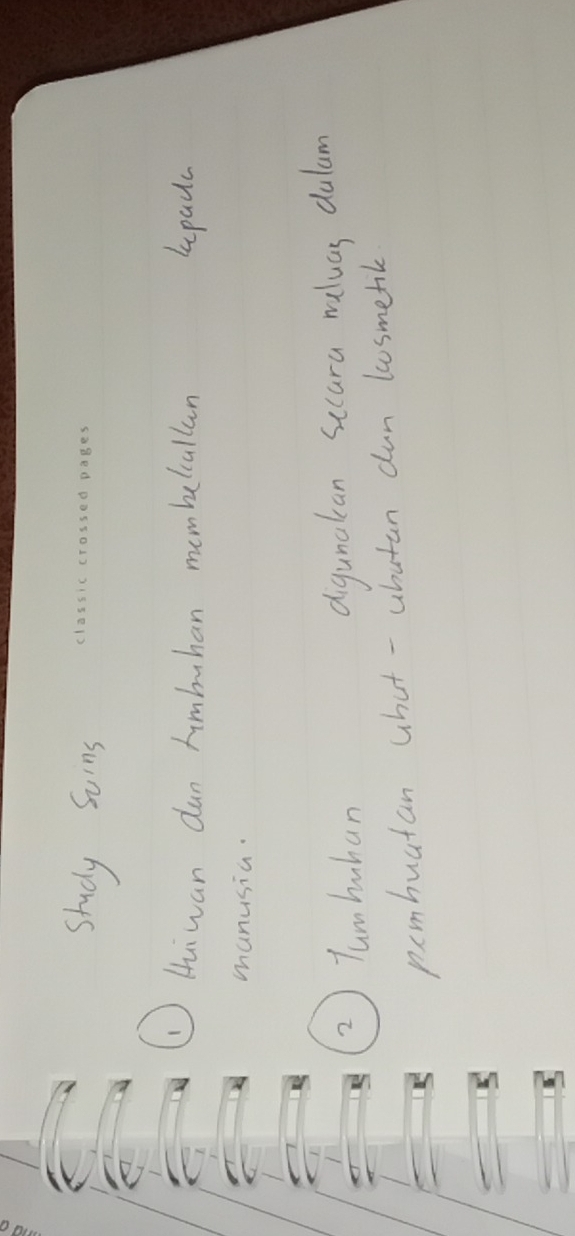 classic crossed pages
Study Sains
1 Haiwan dan tumbuhan membekalkan kepada
manusia.
2 Tumbuhan digunakan secara meluas dalam
pembuatan ubat - ubatan dan kosmetik.